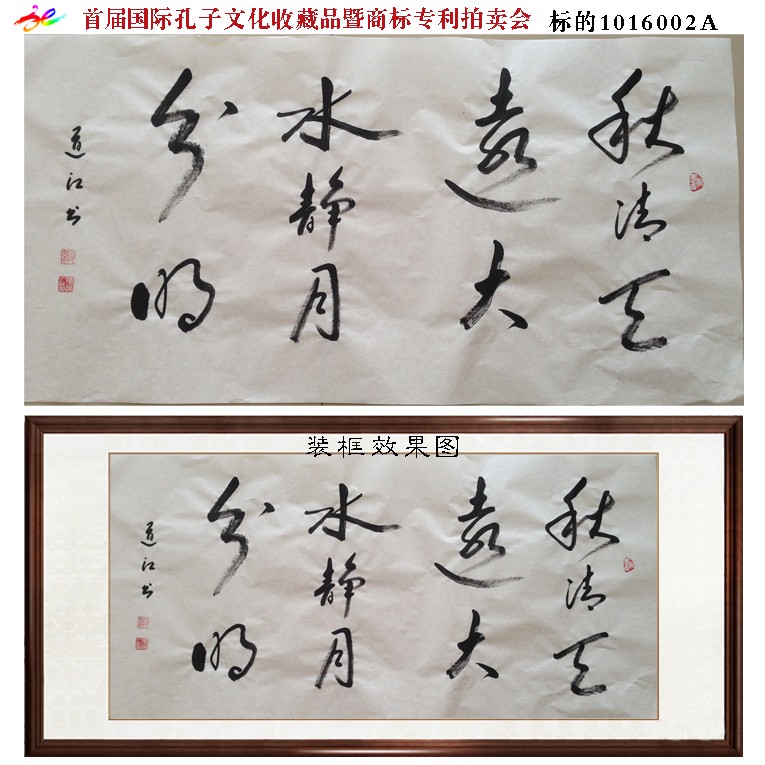 首届国际孔子文化收藏品暨商标专利拍卖会 标的1016002A
秋清天
遠大
水静月
分明
道江书
装框效果图
秋清天
遠大
水静月
分明
道江书